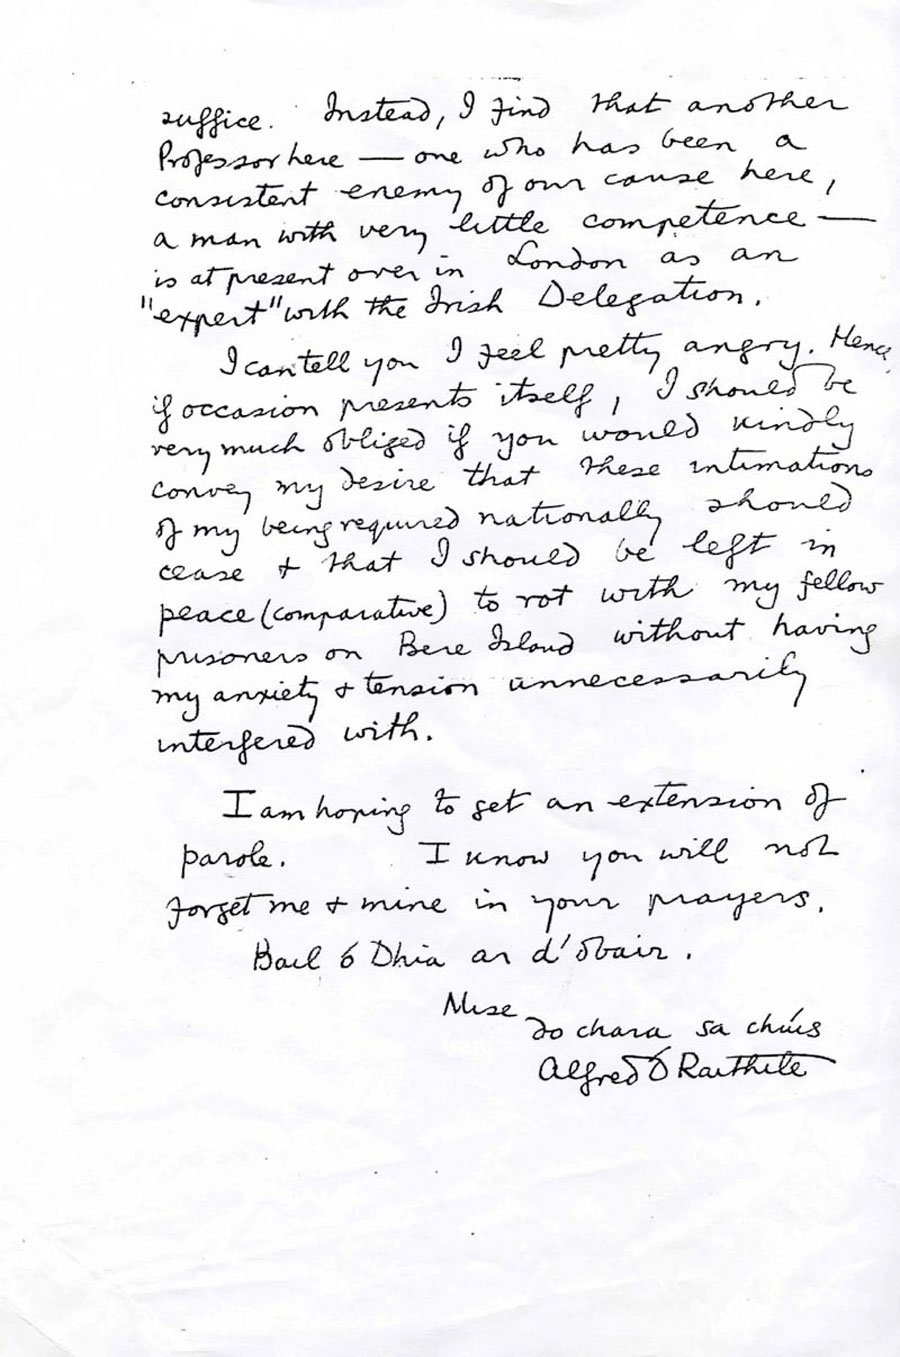 suffice. Instead, I find that another
Professor here — one who has been a
consistent enemy of our cause here,
a man with very little competence —
is at present over in London as an
"expert" with the Irish Delegation.
I can tell you I feel pretty angry. Hence,
if occasion presents itself, I should be
very much obliged if you would kindly
convey my desire that these intimations
of my being required nationally should
cease & that I should be left in
peace (comparative) to rot with my fellow
prisoners on Bere Island without having
my anxiety & tension unnecessarily
interfered with.
I am hoping to get an extension of
parole. I know you will not
forget me & mine in your prayers.
Bail ó Dhia ar d'obair.
Mise
do chara sa chúis
Alfred Ó Raithile